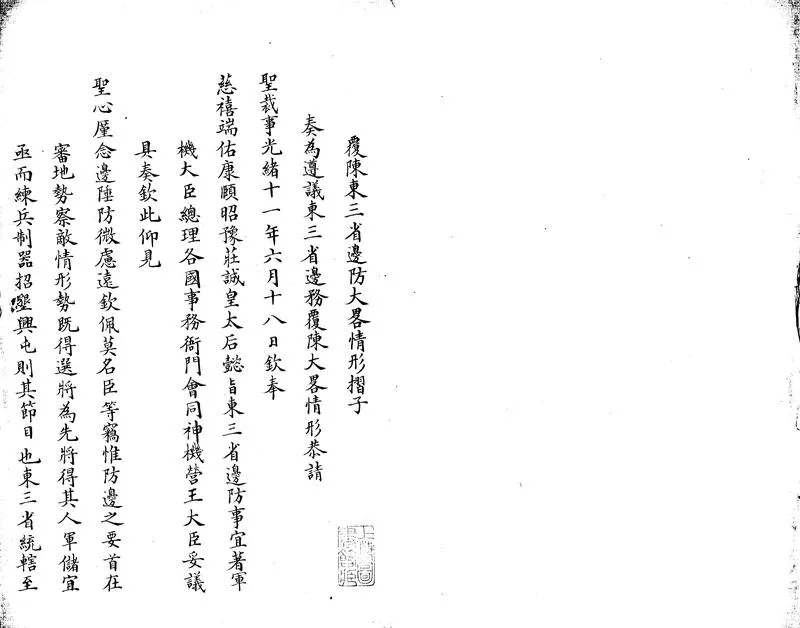 覆陳東三省邊防大畧情形摺子
奏為遵議東三省邊務覆陳大畧情形恭請
聖裁事光緒十一年六月十八日欽奉
慈禧端佑康頤昭豫莊誠皇太后懿旨東三省邊防事宜著軍
機大臣總理各國事務衙門會同神機營王大臣妥議
具奏欽此仰見
聖心厪念邊陲防微慮遠欽佩莫名臣等竊惟防邊之要首在
審地勢察敵情形勢既得選將為先將得其人軍儲宜
亟而練兵制器招墾興屯則其節目也東三省統轄至
上海圖
書館藏